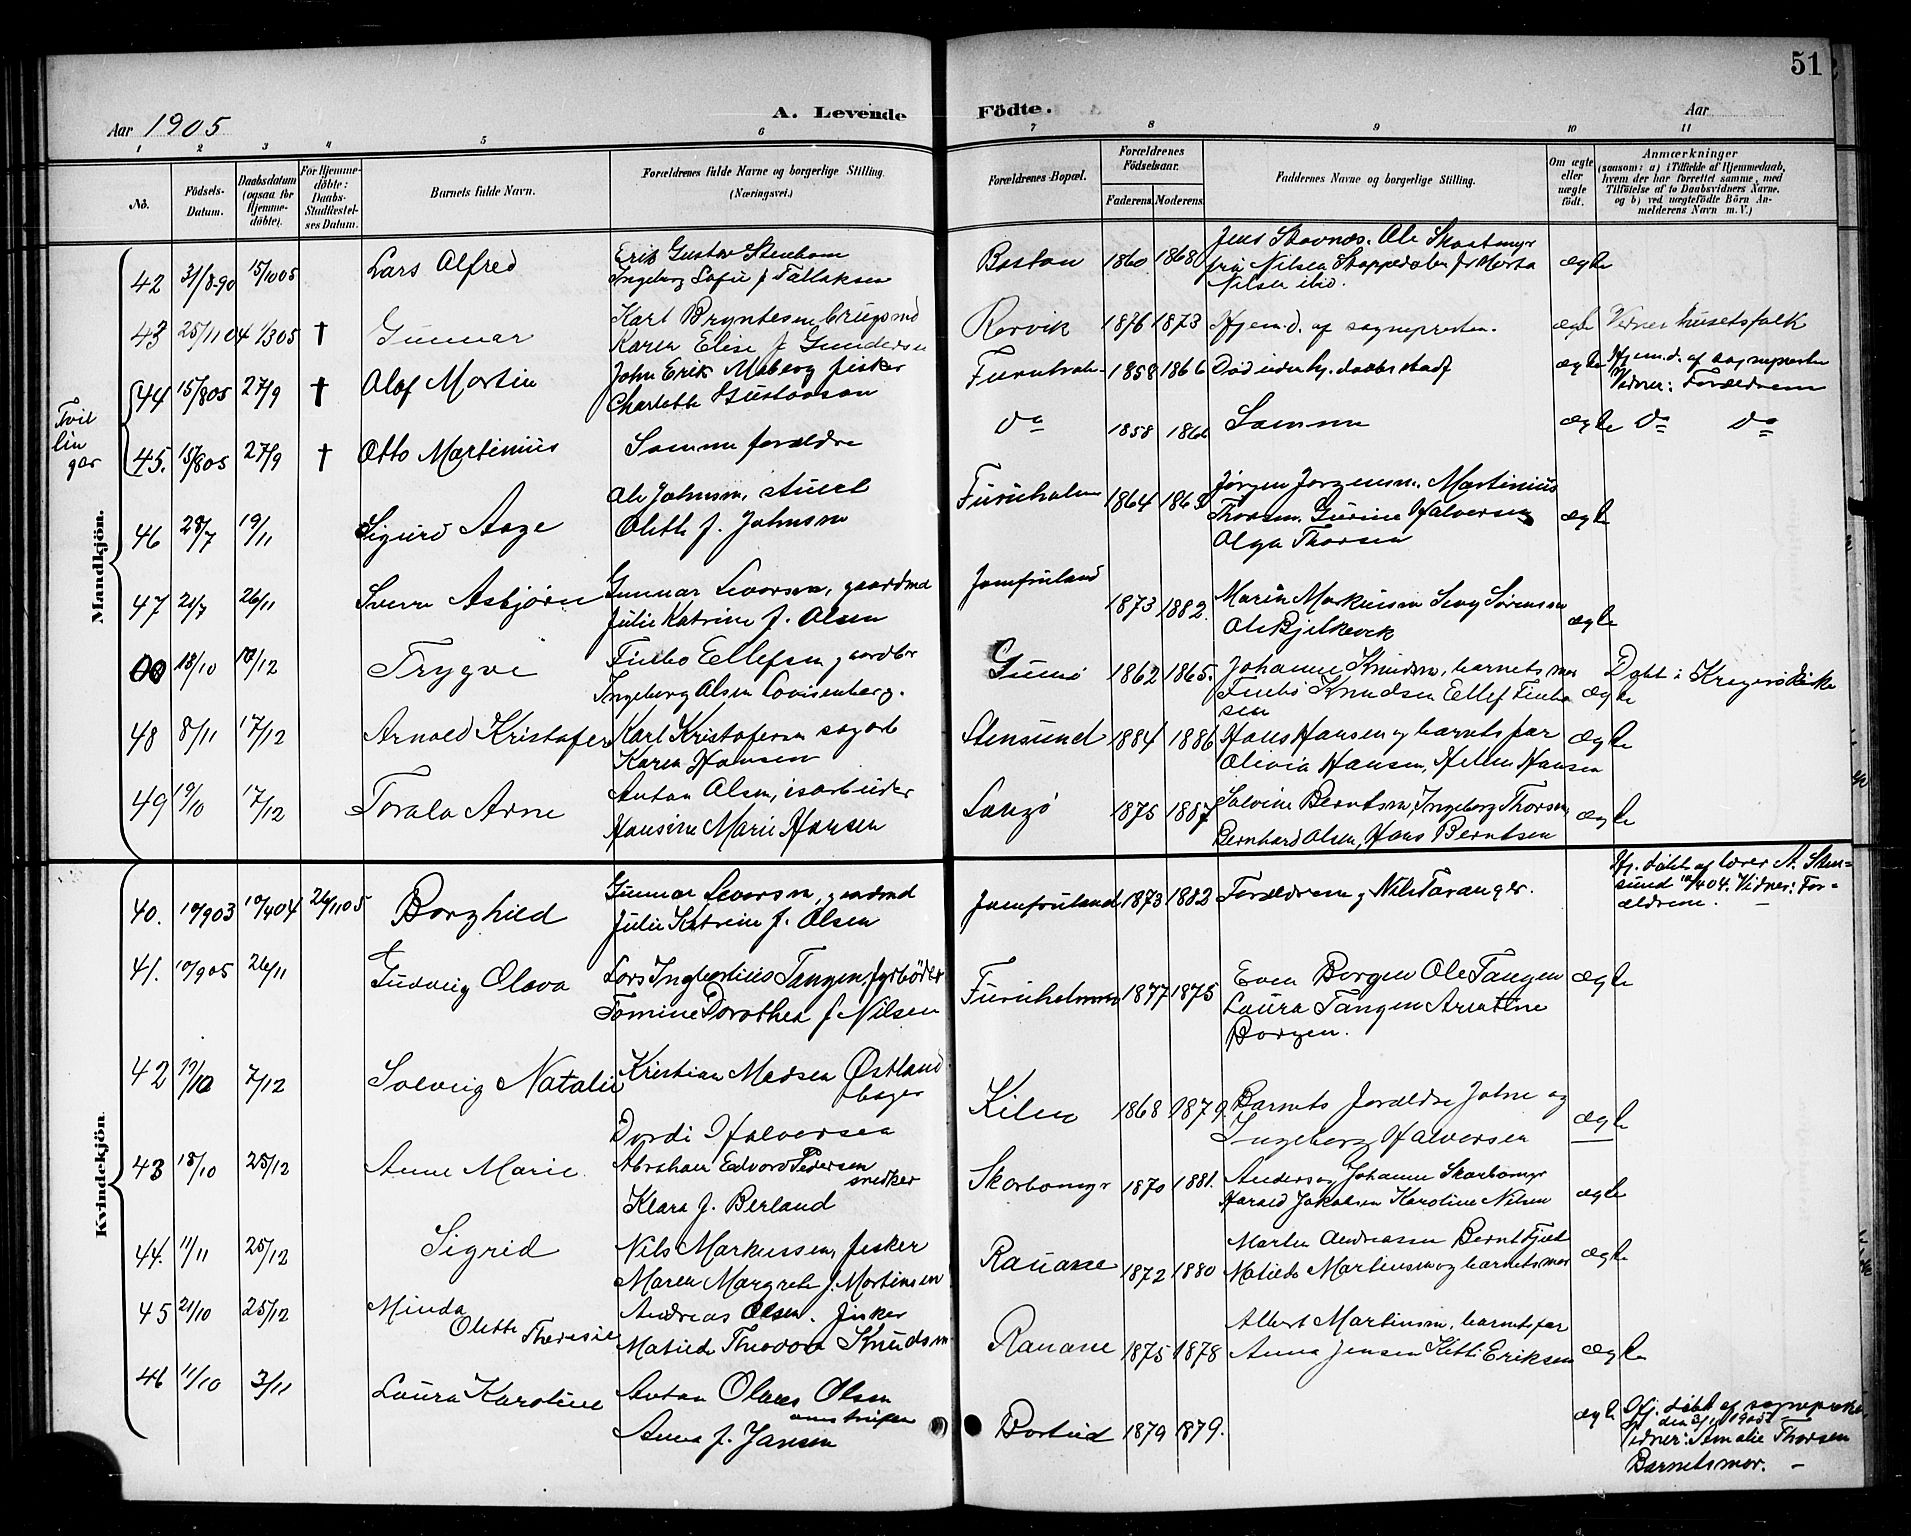 51
Aar 1905
A. Levende
Födte.
Aar
1 2 3 4 5 6 7 8 9 10 11
No.
Födsels-Datum.
Daabsdatum (ogsaa for Hjemmedöbte).
For Hjemmedöbte: Daabs-Stadfæstelses Datum.
Barnets fulde Navn.
Forældrenes fulde Navne og borgerlige Stilling. (Næringsvei.)
Forældrenes Bopæl.
Forældrenes Födselsaar.
Faderens. Moderens.
Faddernes Navne og borgerlige Stilling.
Om ægte eller uægte født.
Anmærkninger
(saasom: a) i Tilfælde af Hjemmedaab,
hvem der har forrettet samme, med
Tilföielse af to Daabsvidners Navne.
og b) ved uægtefödte Börn An-
melderens Navn m. V.)
Mandkjön.
42 31/8-90 15/10 05 Lars Alfred
Erik Gustav Stenham
Ingeborg Sofie f Tallaksen
Boston 1860 1868
Jens Stavnæs. Ole Skaatmyr
fru Nilsen
Nilsen ibid.
ægte
43 25/11 04 1/3 05 † Gunnar
Karl Bryntesen brugsmd
Karen Elise f Gundersen
Rørvik 1876 1873 Hjem.d. af sognepresten. ægte Vidner husetsfolk
Tvil
lin
gar
44 15/8 05 27/9 † Olaf Martin
John Erik Moberg fisker
Charlotte Gustavson
Furuholm 1858 1866 Død uden hj. daabs stadf ægte
Hjem.d. af sognepresten
Vidner: Forældrene
45. 15/8 05 27/9 † Otto Martinius
Samme forældre
do 1858 1866 Samme ægte do do
46 28/7 19/11 Sigurd Aage
Ole Johnsen, stuert
Olette f. Johnsen
Furuholm 1864 1863
Jørgen Jørgensen. Martinius
Thorsen. Gurine Halversen
Olga Thorsen
ægte
47 21/7 26/11 Sverre Asbjørn
Gunnar Sivorsen, gaardmd
Julie Katrine f. Olsen
Jomfruland 1873 1882.
Maren Markussen Sevg Sørensen
Ole Bjelkevik
ægte
00 18/10 10/12 Trygve
Finbo Ellefsen gaardbr
Ingeborg Olsen Lovisenberg.
Gumø 1862 1865.
Johanne Knudsen, barnets mor
Finbo Knudsen Ellef Finbo
sen
ægte Døbt i Kragerø kirke
48 8/11 17/12 Arnold Kristofer
Karl Kristofersen sagarb
Karen Hansen
Stensund 1884 1886
Hans Hansen og barnets far
Olivia Hansen, Hellen Hansen
ægte
49 19/10 17/12 Toralo Arne
Anton Olsen, isarbeider
Hansine Marie Hansen
Langö 1875 1887
Salvine Berntsen, Ingeborg Thorsen
Bernhard Olsen, Hans Berntsen
ægte
Kvindekjön.
40. 10/9 03 10/4 04 26/11 05 Borghild
Gunnar Sivorsen, gaardmd
Julie Katrine f. Olsen
Jomfruland 1873 1882 Forældrene og Nils Taranger.
Hj. døbt af lærer A. Sten-
sund 10/4 04. Vidner: For-
ældrene.
41. 10/9 05 26/11 Gudveig Olava
Lars Ingbertius Tangen, fyrbøder
Tomine Dorothea f Nilsen
Furuholmen 1877 1875
Even Borgen Ole Tangen
Laura Tangen Ariatine
Borgen.
ægte
42 17/10 7/12 Solveig Natalie
Kristian Madsen Østland
bager
Dordi Halversen
Kilen 1868 1879.
Barnets forældre John og
Ingeborg Halversen
ægte
43 18/10 25/12 Anne Marie
Abraham Edvard Pedersen
snedker
Klara f. Berland
Skarbomyr 1870 1881.
Anders og Johanne Skarbomyr
Harald Jakobsen Karoline Nilsen
ægte
44. 11/11 25/12 Sigrid
Nils Markussen, fisker
Maren Margrete f. Martinsen
Rauane 1872 1880
Martin Andreassen Bernt Fjeld
Matilde Martinsen og barnets mor
ægte
45 21/10 25/12 Minda
Olette Theresie
Andreas Olsen. fisker
Matilde Theodora Knudsen
Rauane 1875 1878
Albert Martinsen, barnets far
Anna Jensen Kitti Eriksen
ægte
46 11/10 3/11 Laura Karoline
Anton Olaves Olsen
Anna f. Jansen
Borteid 1879 1879.
ægte
Hj. døbt af sognepresten
den 3/11 1905
Vidner: Amalie Thorsen
Barnets mor.